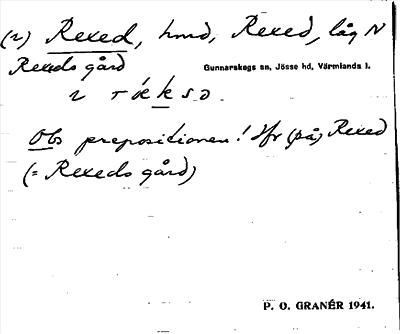 (2) Rexed, hmd, Rexed, låg N
Rexeds gård
Gunnarskogs sn, Jösse hd, Värmlands l.
Obs prepositionen! Jfr (på) Rexed
(= Rexeds gård)
P. O. GRANÉR 1941.